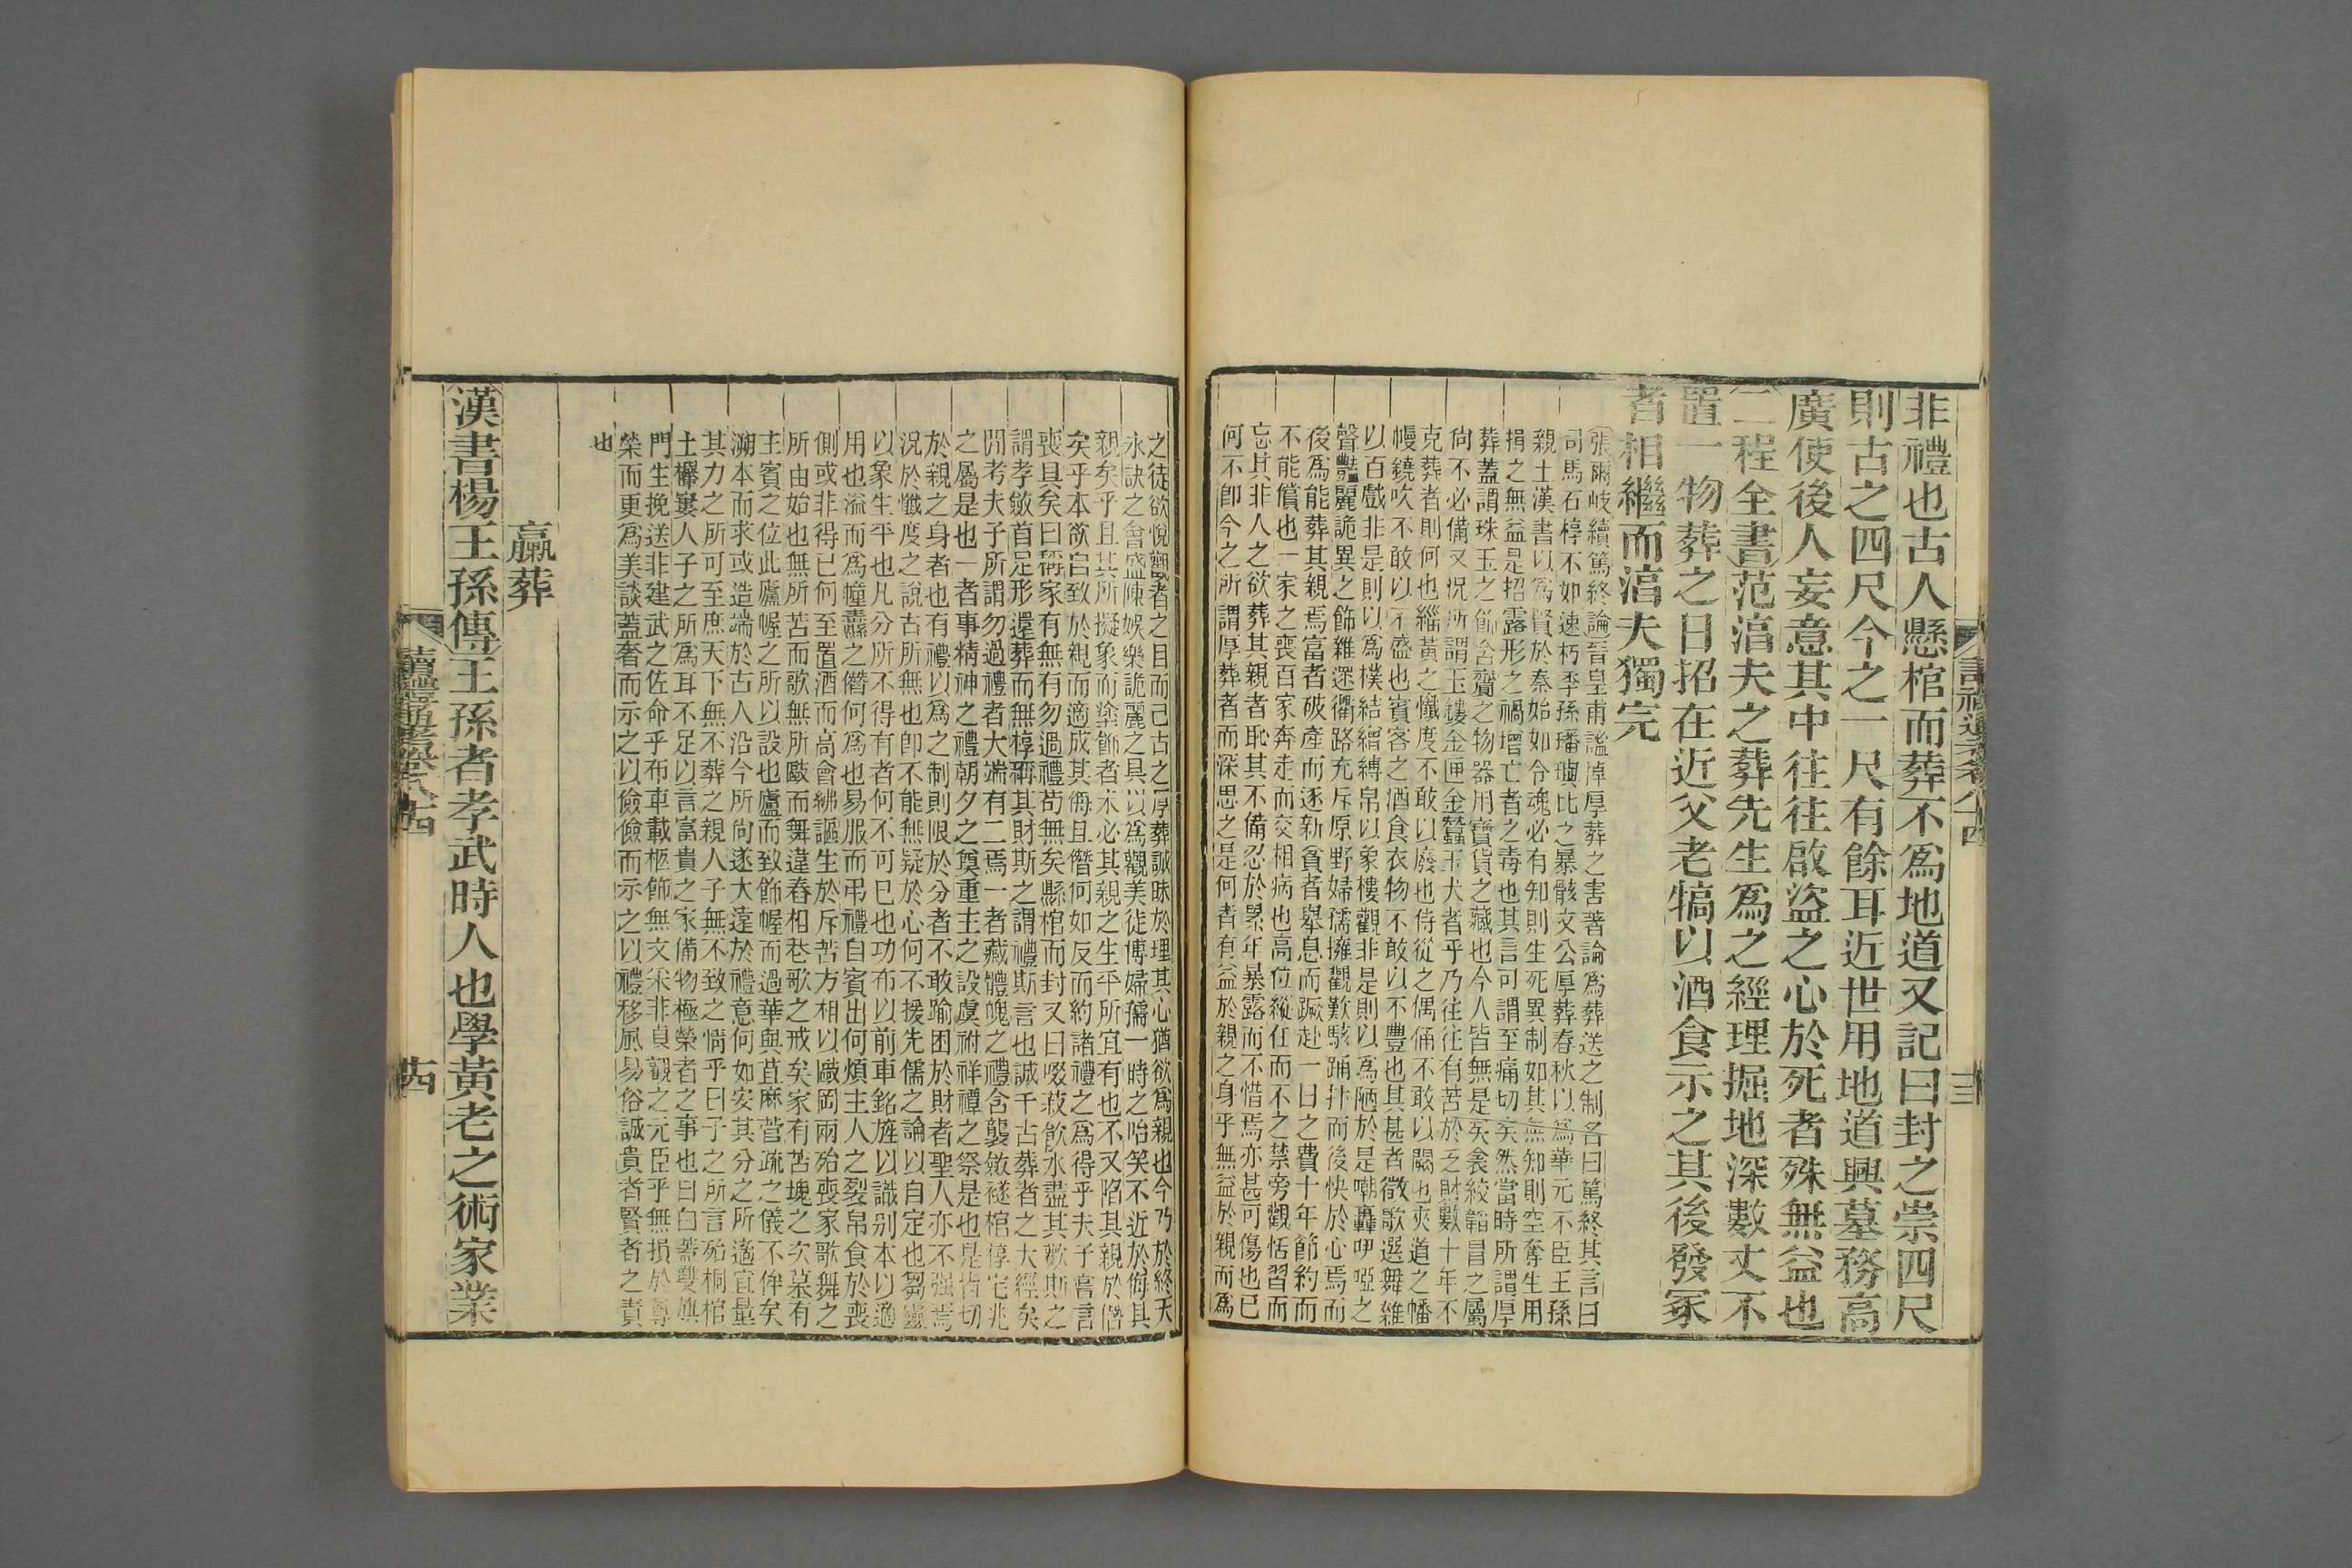 非禮也古人懸棺而葬不爲地道又記曰封之崇四尺
則古之四尺今之一尺有餘耳近世用地道興墓務高
廣使後人妄意其中往往啟盜之心於死者殊無益也
二程全書范滈夫之葬先生爲之經理掘地深數丈不
置一物葬之日招在近父老犒以酒食示之其後發冢
者相繼而滈夫獨完
張爾岐續篤終論晉皇甫謐悼厚葬之害著論爲葬送之制名曰篤終其言曰
司馬石椁不如速朽季孫璠璵比之暴骸文公厚葬春秋以爲華元不臣王孫
親土漢書以爲賢於秦始如令魂必有知則生死異制如其無知則空奪生用
損之無益是招露形之禍增亡者之毒也其言可謂至痛切矣然當時所謂厚
葬蓋謂珠玉之飾含齎之物器用寶貨之藏也今人皆無是矣衾絞韜冒之屬
尙不必備又況所謂玉鏤金匣金蠶玉犬者乎乃往往有苦於乏財數十年不
克葬者則何也緇黃之懺度不敢以廢也侍從之偶俑不敢以闕也夾道之幡
幔鐃吹不敢以不盛也賓客之酒食衣物不敢以不豐也其甚者徵歌選舞雜
以百戲非是則以爲樸結繒縛帛以象樓觀非是則以爲陋於是嘲轟咿啞之
聲豔麗詭異之飾雜遝衢路充斥原野婦孺擁觀歎駭踊抃而後快於心焉而
後爲能葬其親焉富者破產而逐新貧者舉息而蹶赴一日之費十年節約而
不能償也一家之喪百家奔走而交相病也高位縱任而不之禁旁觀恬習而
忘其非人之欲葬其親者恥其不備忍於累年暴露而不惜焉亦甚可傷也已
何不卽今之所謂厚葬者而深思之是何者有益於親之身乎無益於親而爲
之徒欲悅觀者之目而已古之厚葬誠昧於理其心猶欲爲親也今乃於終天
永訣之會盛陳娛樂詭麗之具以爲觀美徒博婦孺一時之咍笑不近於侮其
親矣乎且其所擬象而塗飾者未必其親之生平所宜有也不又陷其親於僭
矣乎本欲自致於親而適成其侮且僭何如反而約諸禮之爲得乎夫子言
喪具矣曰稱家有無有勿過禮苟無矣縣棺而封又曰啜菽飲水盡其歡斯之
謂孝斂首足形還葬而無椁稱其財斯之謂禮斯言也誠千古葬者之大經矣
閒考夫子所謂勿過禮者大端有二焉一者藏體魄之禮含襲斂襚棺椁宅兆
之屬是也一者事精神之禮朝夕之奠重主之設虞祔祥禫之祭是也是皆切
於親之身者也有禮以爲之制則限於分者不敢踰困於財者聖人亦不强焉
況於懺度之說古所無也卽不能無疑於心何不援先儒之論以自定也芻靈
以象生平也凡分所不得有者何不可已也功布以前車銘旌以識别本以適
用也溢而爲幢纛之僭何爲也易服而弔禮自賓出何煩主人之裂帛食於喪
側或非得已何至置酒而高會紼謳生於斥苦方相以毆罔兩殆喪家歌舞之
所由始也無所苦而歌無所毆而舞違舂相巷歌之戒矣家有苫塊之次墓有
主賓之位此廬幄之所以設也廬而致飾幄而過華與苴麻菅疏之儀不侔矣
溯本而求或造端於古人沿今所尙遂大遠於禮意何如安其分之所適宜量
其力之所可至庶天下無不葬之親人子無不致之情乎曰子之所言殆桐棺
土欙窶人子之所爲耳不足以言富貴之家備物極榮者之事也曰白蓋雙旐
門生挽送非建武之佐命乎布車載柩飾無文采非貞觀之元臣乎無損於尊
榮而更爲美談蓋奢而示之以儉儉而示之以禮移風易俗誠貴者賢者之責
也
臝葬
漢書楊王孫傳王孫者孝武時人也學黃老之術家業
讀禮通考卷八十四
十三
讀禮通考卷八十四
十四